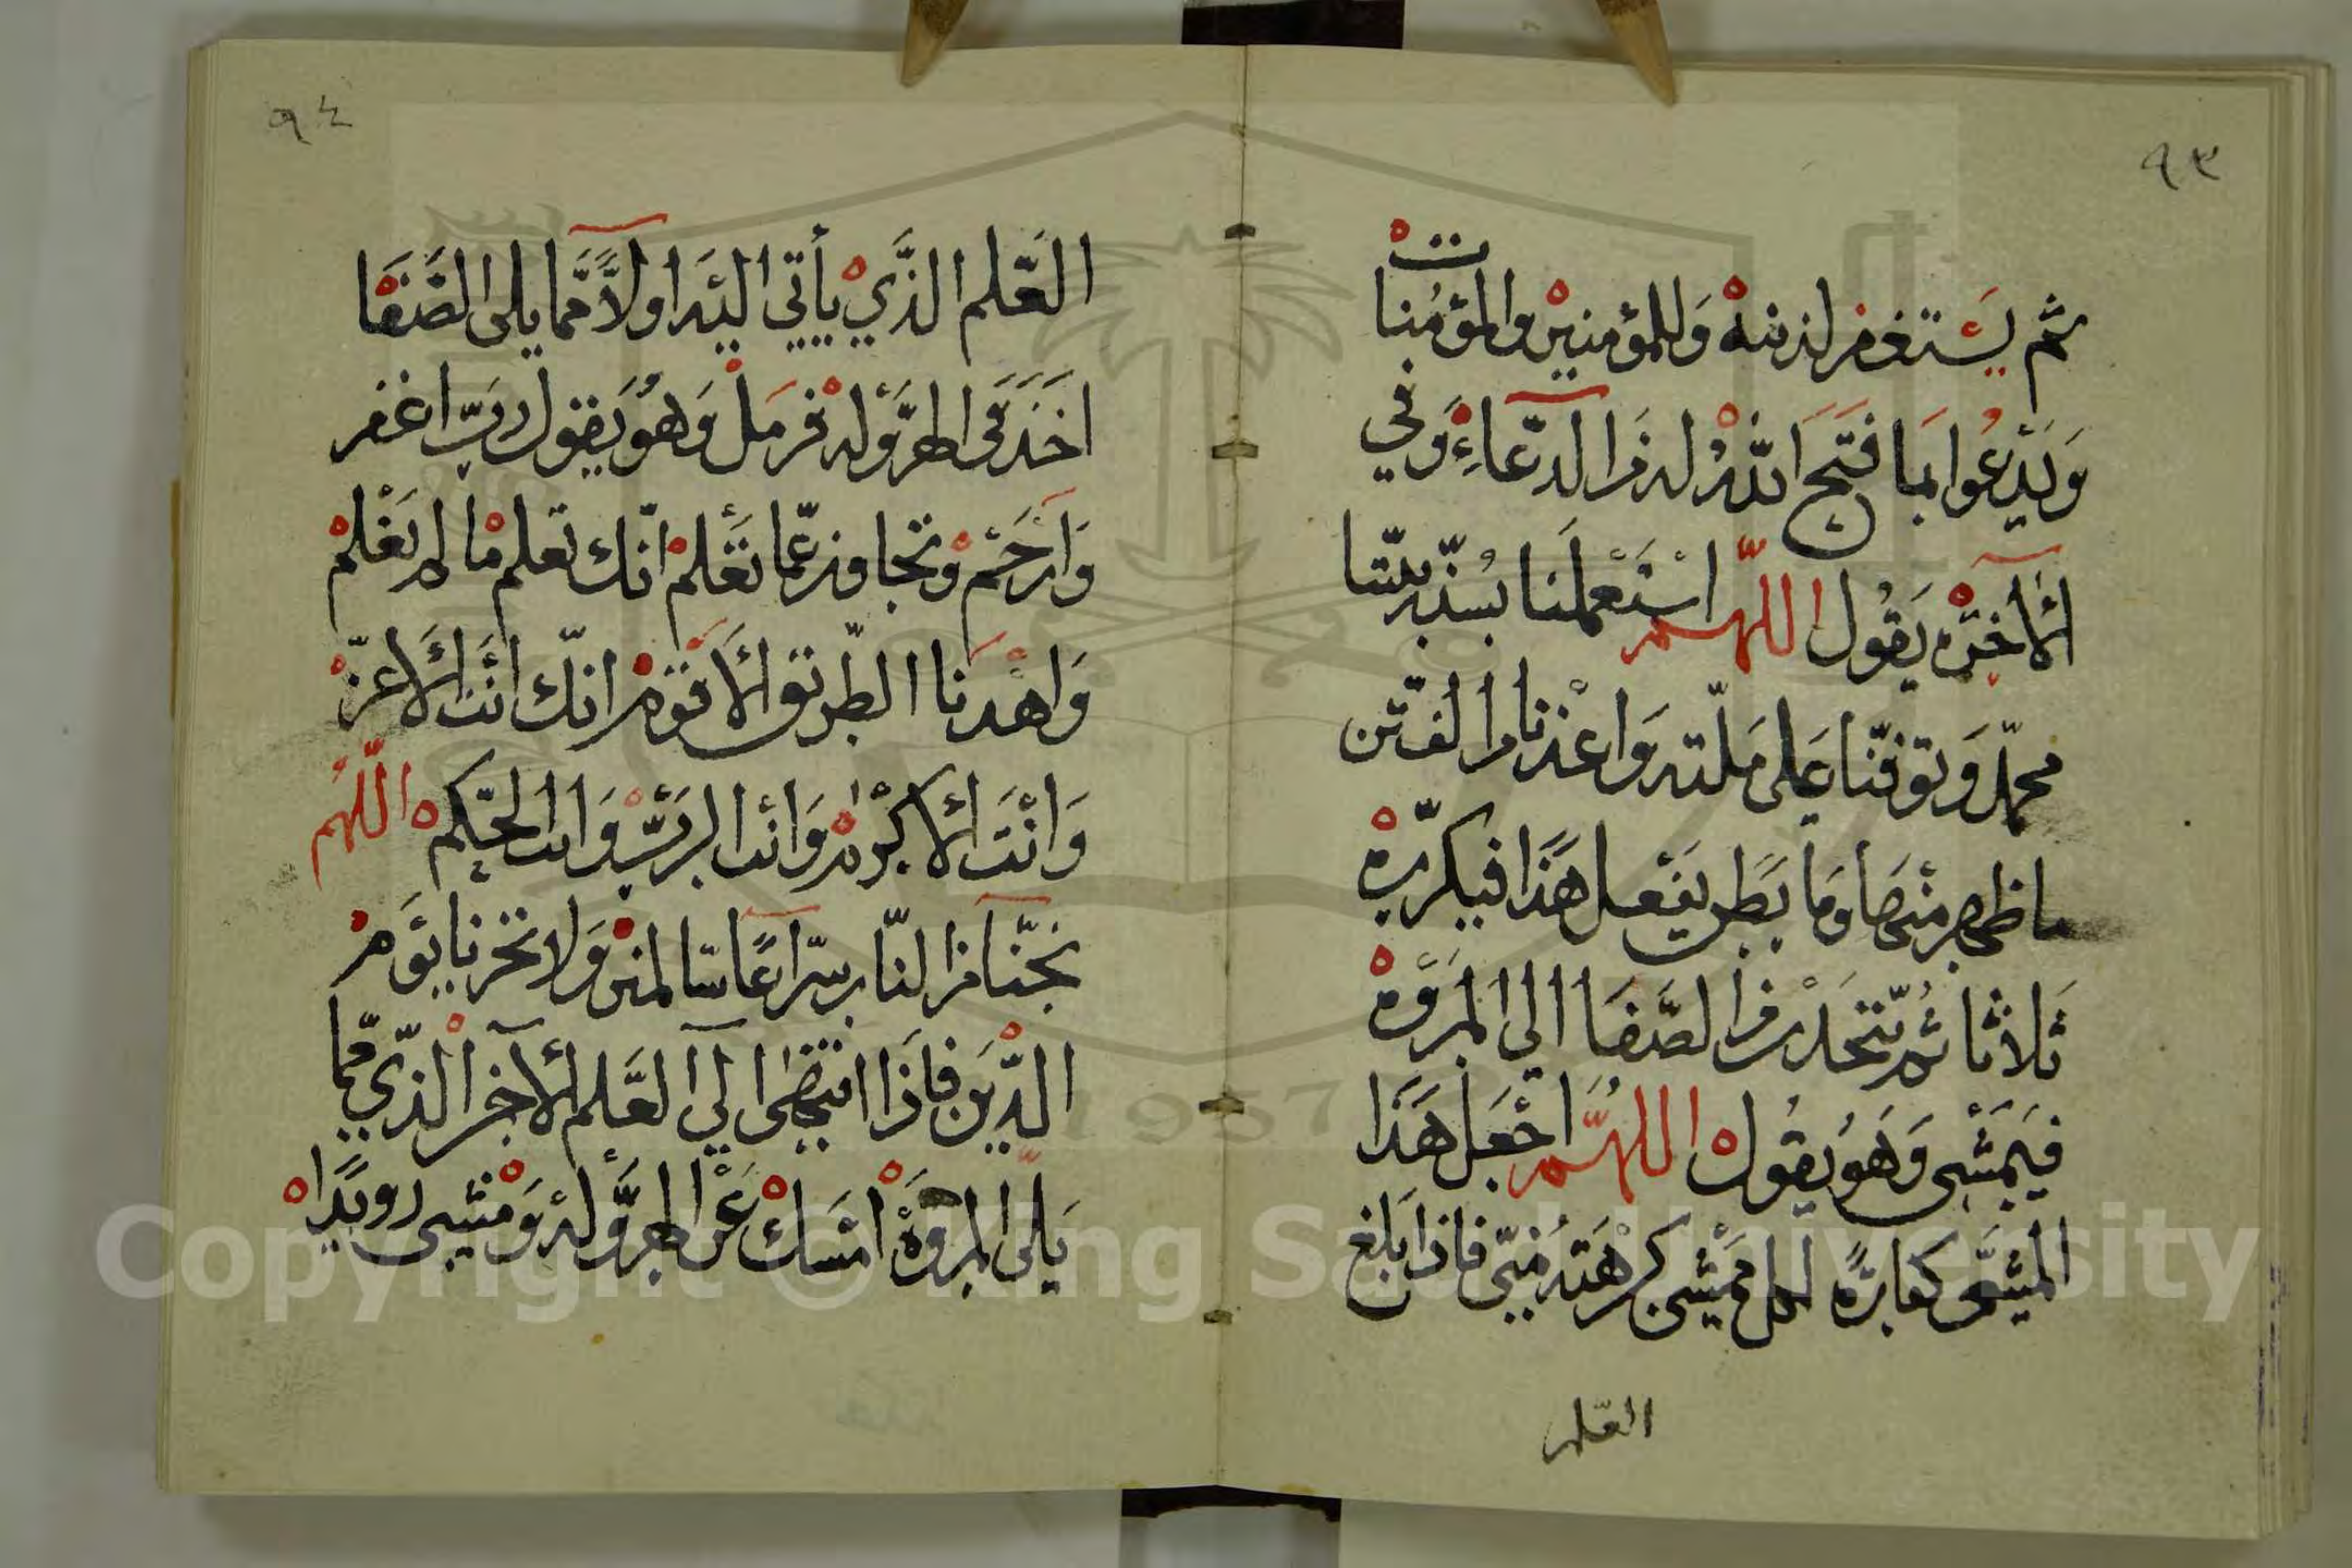 ٩٣
ثم يستغفر لذنبه وللمؤمنين والمؤمنات
ويدعوا بما فتح الله له من الدعاء وفي
الآخره يقول اللهم استعملنا بسنة نبينا
محمد وتوفنا على ملته واعذنا من الفتن
ما ظهر منها وما بطن يفعل هذا فيكرره
ثلاثا ثم يتحدر من الصفا الى المروه
فيمشى وهو يقول اللهم اجعل هذا
المشى كفارة لكل ممشى كرهته منى فاذا بلغ
العلم
٩٤
العلم الذي يأتي اليه اولا مما يلى الصفا
اخذ فى الهروله فرمل وهو يقول رب اغفر
وارحم وتجاوز عما تعلم انك تعلم ما لم نعلم
واهدنا الطريق الاقوم انك انت الاعز
وانت الاكرم وانت الرب وانت الحكم اللهم
نجنا من النار سراعا سالمين ولا تخزنا يوم
الدين فاذا انتهى الى العلم الآخر الذي مما
يلى المروة امسك عن الهروله ومشى رويدا
Copyright © King Saud University
1957